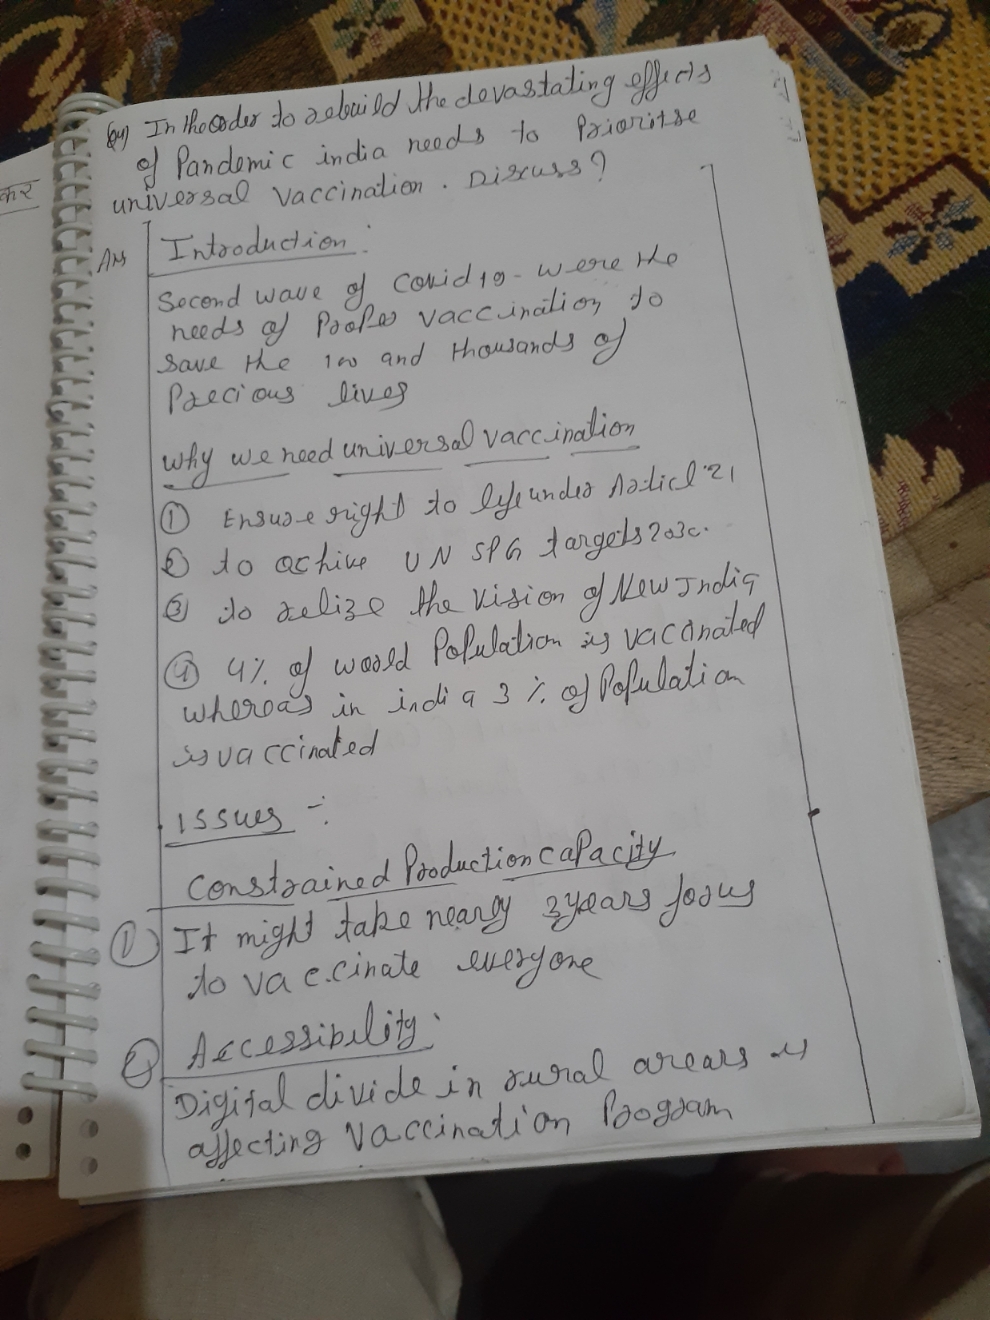 कर
Q4) In the oder to rebuild the devastating effects
of Pandemic india needs to Prioritse
universal vaccination. Discuss?
Ans
Introduction:
Second wave of Covid 19- were the
needs of Proper vaccination to
save the 100 and thousands of
Precious lives
Why we need universal vaccination
① Ensure right to life under Articl '21
② to achive UN SPG targets 2030.
③ to relize the vision of New India
④ 4% of world Population is vaccinated
whereas in india 3% of Population
is vaccinated
Issues -:
Constrained Production capacity
① It might take nearly 3 years
to vaccinate everyone
② Accessibility:
Digital divide in rural arears is
affecting Vaccination Program